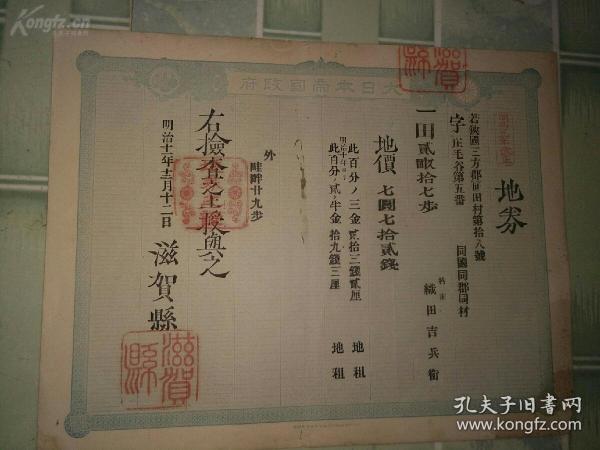 Kongfz.com
孔夫子旧书网
滋賀縣
大日本帝國政府
地券
若狹國三方郡佰田村第拾八號
字庄毛谷第五番
同國同郡同村
持主 織田吉兵衛
一田貳畝拾七歩
地價七圓七拾貳錢
此百分ノ三金貳拾三錢貳厘 地租
明治十年ヨリ
此百分ノ貳ヶ半金拾九錢三厘 地租
外
畦畔廿九歩
右檢査之上授與之
明治十一年十二月十二日
滋賀縣
滋賀縣
孔夫子旧书网
www.kongfz.com